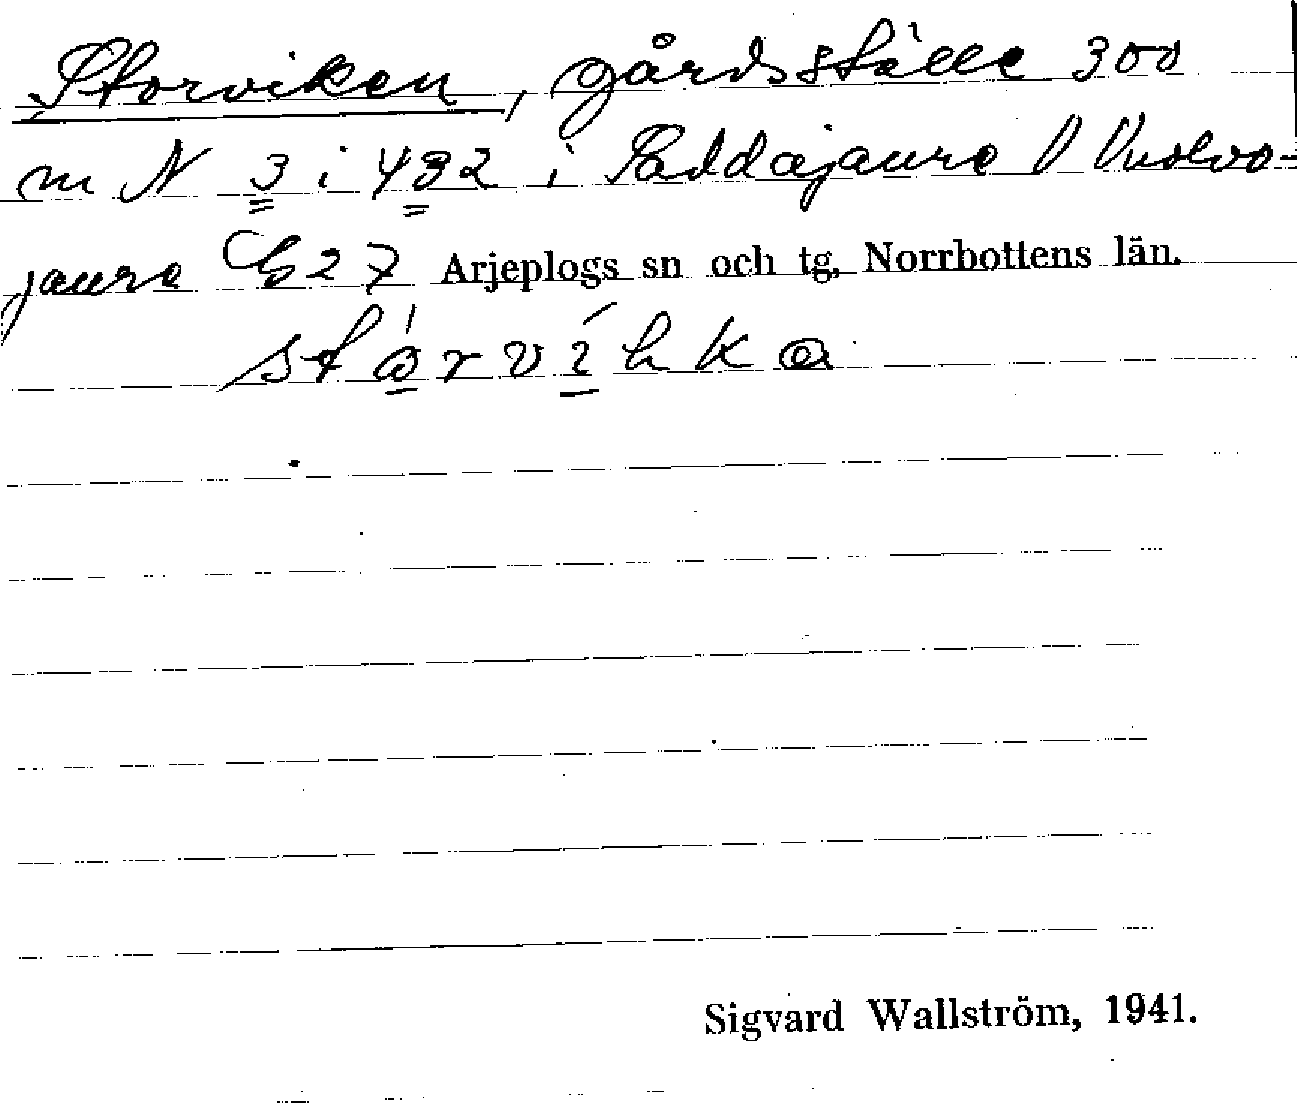 Storviken, gårdsställe 300
m N 3 i 432 i Paddajaure V Vuolvo-
jaure G 27 Arjeplogs sn och tg, Norrbottens län.
stårvíhka
Sigvard Wallström, 1941.